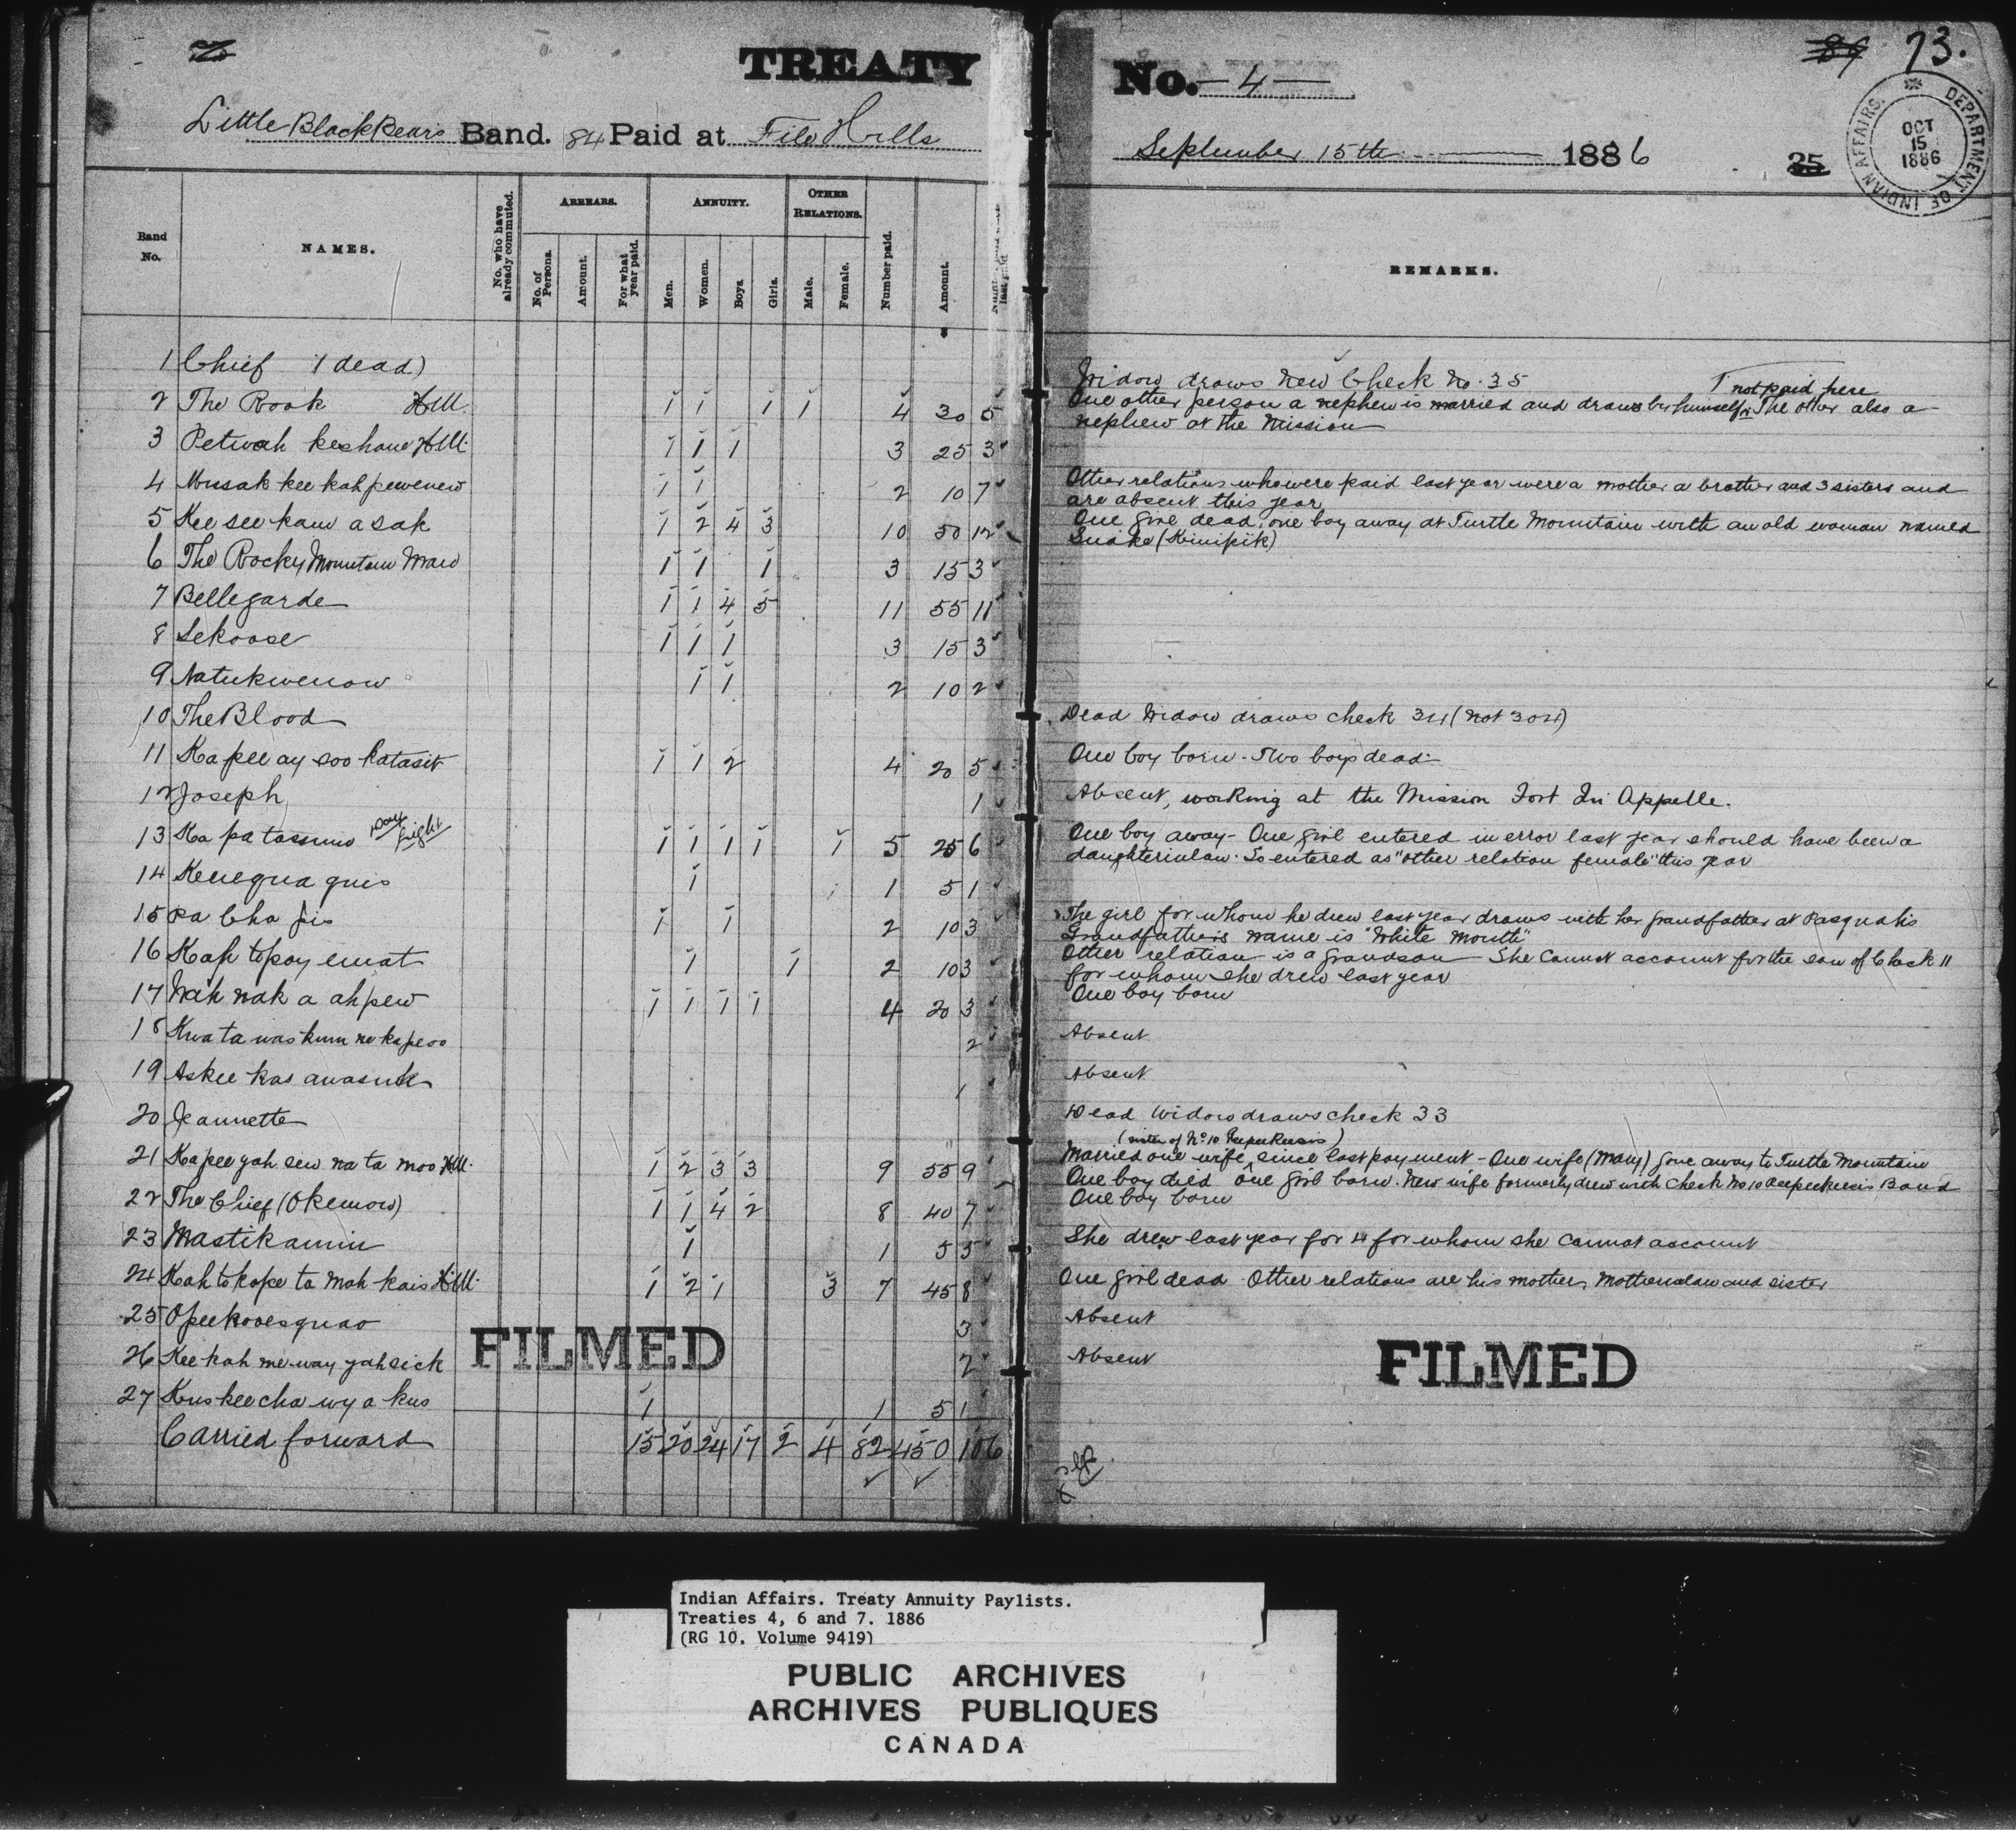 TREATY No. 4
73.
Little Black Bears Band. 84 Paid at File Hills
September 15th 1886
25
DEPARTMENT OF INDIAN AFFAIRS.
OCT
15
1886
Band No.
NAMES.
No. who have already commuted.
ARREARS.
No. of Persons.
Amount.
For what year paid.
ANNUITY.
Men.
Women.
Boys.
Girls.
OTHER RELATIONS.
Male.
Female.
Number paid.
Amount.
REMARKS.
1 Chief (dead) Widow draws new Check No. 35
2 The Rook HM. 1 1 1 1 4 30 5 One other person a nephew is married and draws by himself. The other also a
not paid here
nephew at the Mission
3 Petwah keshane HM. 1 1 1 3 25 3
4 Musak kee kah pewenew 1 1 2 10 7 Other relations who were paid last year were a mother a brother and 3 sisters and
are absent this year
5 Kee see kaw a sak 1 2 4 3 10 50 12 One girl dead, one boy away at Turtle Mountain with an old woman named
Snake (Kinipik)
6 The Rocky Mountain Man 1 1 1 3 15 3
7 Bellegarde 1 1 4 5 11 55 11
8 Sekoose 1 1 1 3 15 3
9 Natukwenow 1 1 2 10 2
10 The Blood Dead Widow draws check 34 (not 304)
11 Ka pee ay soo katasit 1 1 2 4 20 5 One boy born - Two boys dead
12 Joseph 1 Absent, working at the Mission Fort Qu'Appelle.
13 Ka pa tassino 1 1 1 1 1 5 25 6 One boy away - One girl entered in error last year should have been a
daughterinlaw. So entered as "other relation female" this year
14 Kenequa quis 1 1 5 1
15 Pa Cha jis 1 1 2 10 3 The girl for whom he drew last year draws with her grandfather at Pasquahs
Grandfather's name is "White Mouth"
16 Kah topay emat 1 1 2 10 3 Other relation is a grandson - She cannot account for the son of Check 11
for whom she drew last year
17 Nah nak a ahpew 1 1 1 1 4 20 3 One boy born
18 Kwa ta was kum ne kapeoo 2 Absent
19 Askee kas awasuk 1 Absent
20 Jeannette Dead Widow draws check 33
(sister of No 10 Peepeekeesis)
21 Kapee yah sew na ta moo HM. 1 2 3 3 9 55 9 Married one wife since last payment - One wife (Mary) gone away to Turtle Mountain
One boy died One girl born. New wife formerly drew with Check No 10 Peepeekeesis Band
22 The Chief (Okemow) 1 1 4 2 8 40 7 One boy born
23 Mastikamin 1 1 5 5 She drew last year for 4 for whom she cannot account
24 Kah to kope ta mah kais HM. 1 2 1 3 7 45 8 One girl dead - Other relations are his mother, Motherinlaw and sister
25 Opeekooesquao 3 Absent
26 Kee kah me way yah sick 2 Absent
27 Kuskee cha wy a kus 1 1 5 1
Carried forward 15 20 24 17 2 4 82 450 106
FILMED
FILMED
Indian Affairs. Treaty Annuity Paylists.
Treaties 4, 6 and 7. 1886
(RG 10, Volume 9419)
PUBLIC ARCHIVES
ARCHIVES PUBLIQUES
CANADA